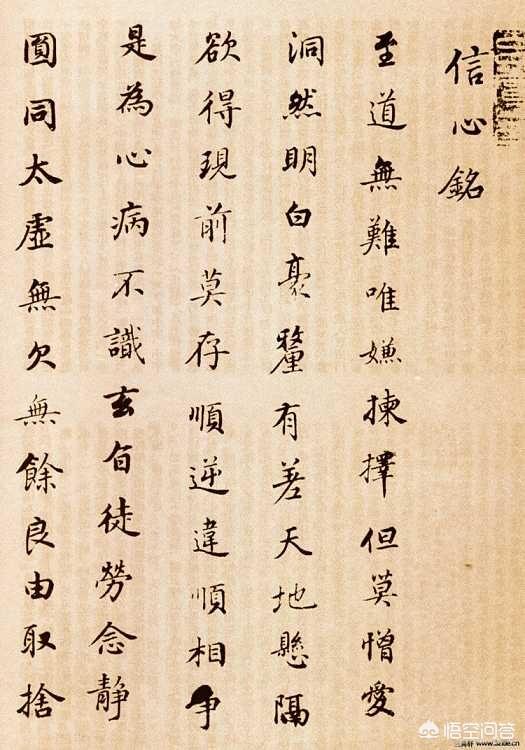 信心銘
至道無難唯嫌揀擇但莫憎愛
洞然明白毫釐有差天地懸隔
欲得現前莫存順逆違順相争
是為心病不識玄旨徒勞念静
圓同太虛無欠無餘良由取捨
悟空问答
www.5zixie.cn